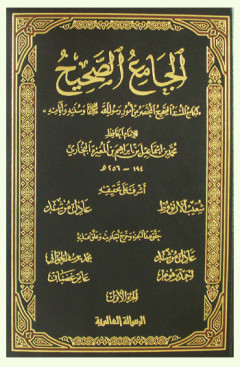 الجامع الصحيح
الجامع المسند الصحيح المختصر من أمور رسول الله ﷺ وسننه وأيامه
للإمام الحافظ
محمد بن إسماعيل بن إبراهيم بن المغيرة البخاري
١٩٤ - ٢٥٦ هـ
أشرف على تحقيقه
شعيب الأرنؤوط عادل مرشد
حقق هذا الجزء وخرج أحاديثه وعلق عليه
عادل مرشد
أحمد برهوم عامر غضبان
الجزء الأول
الرسالة العالمية